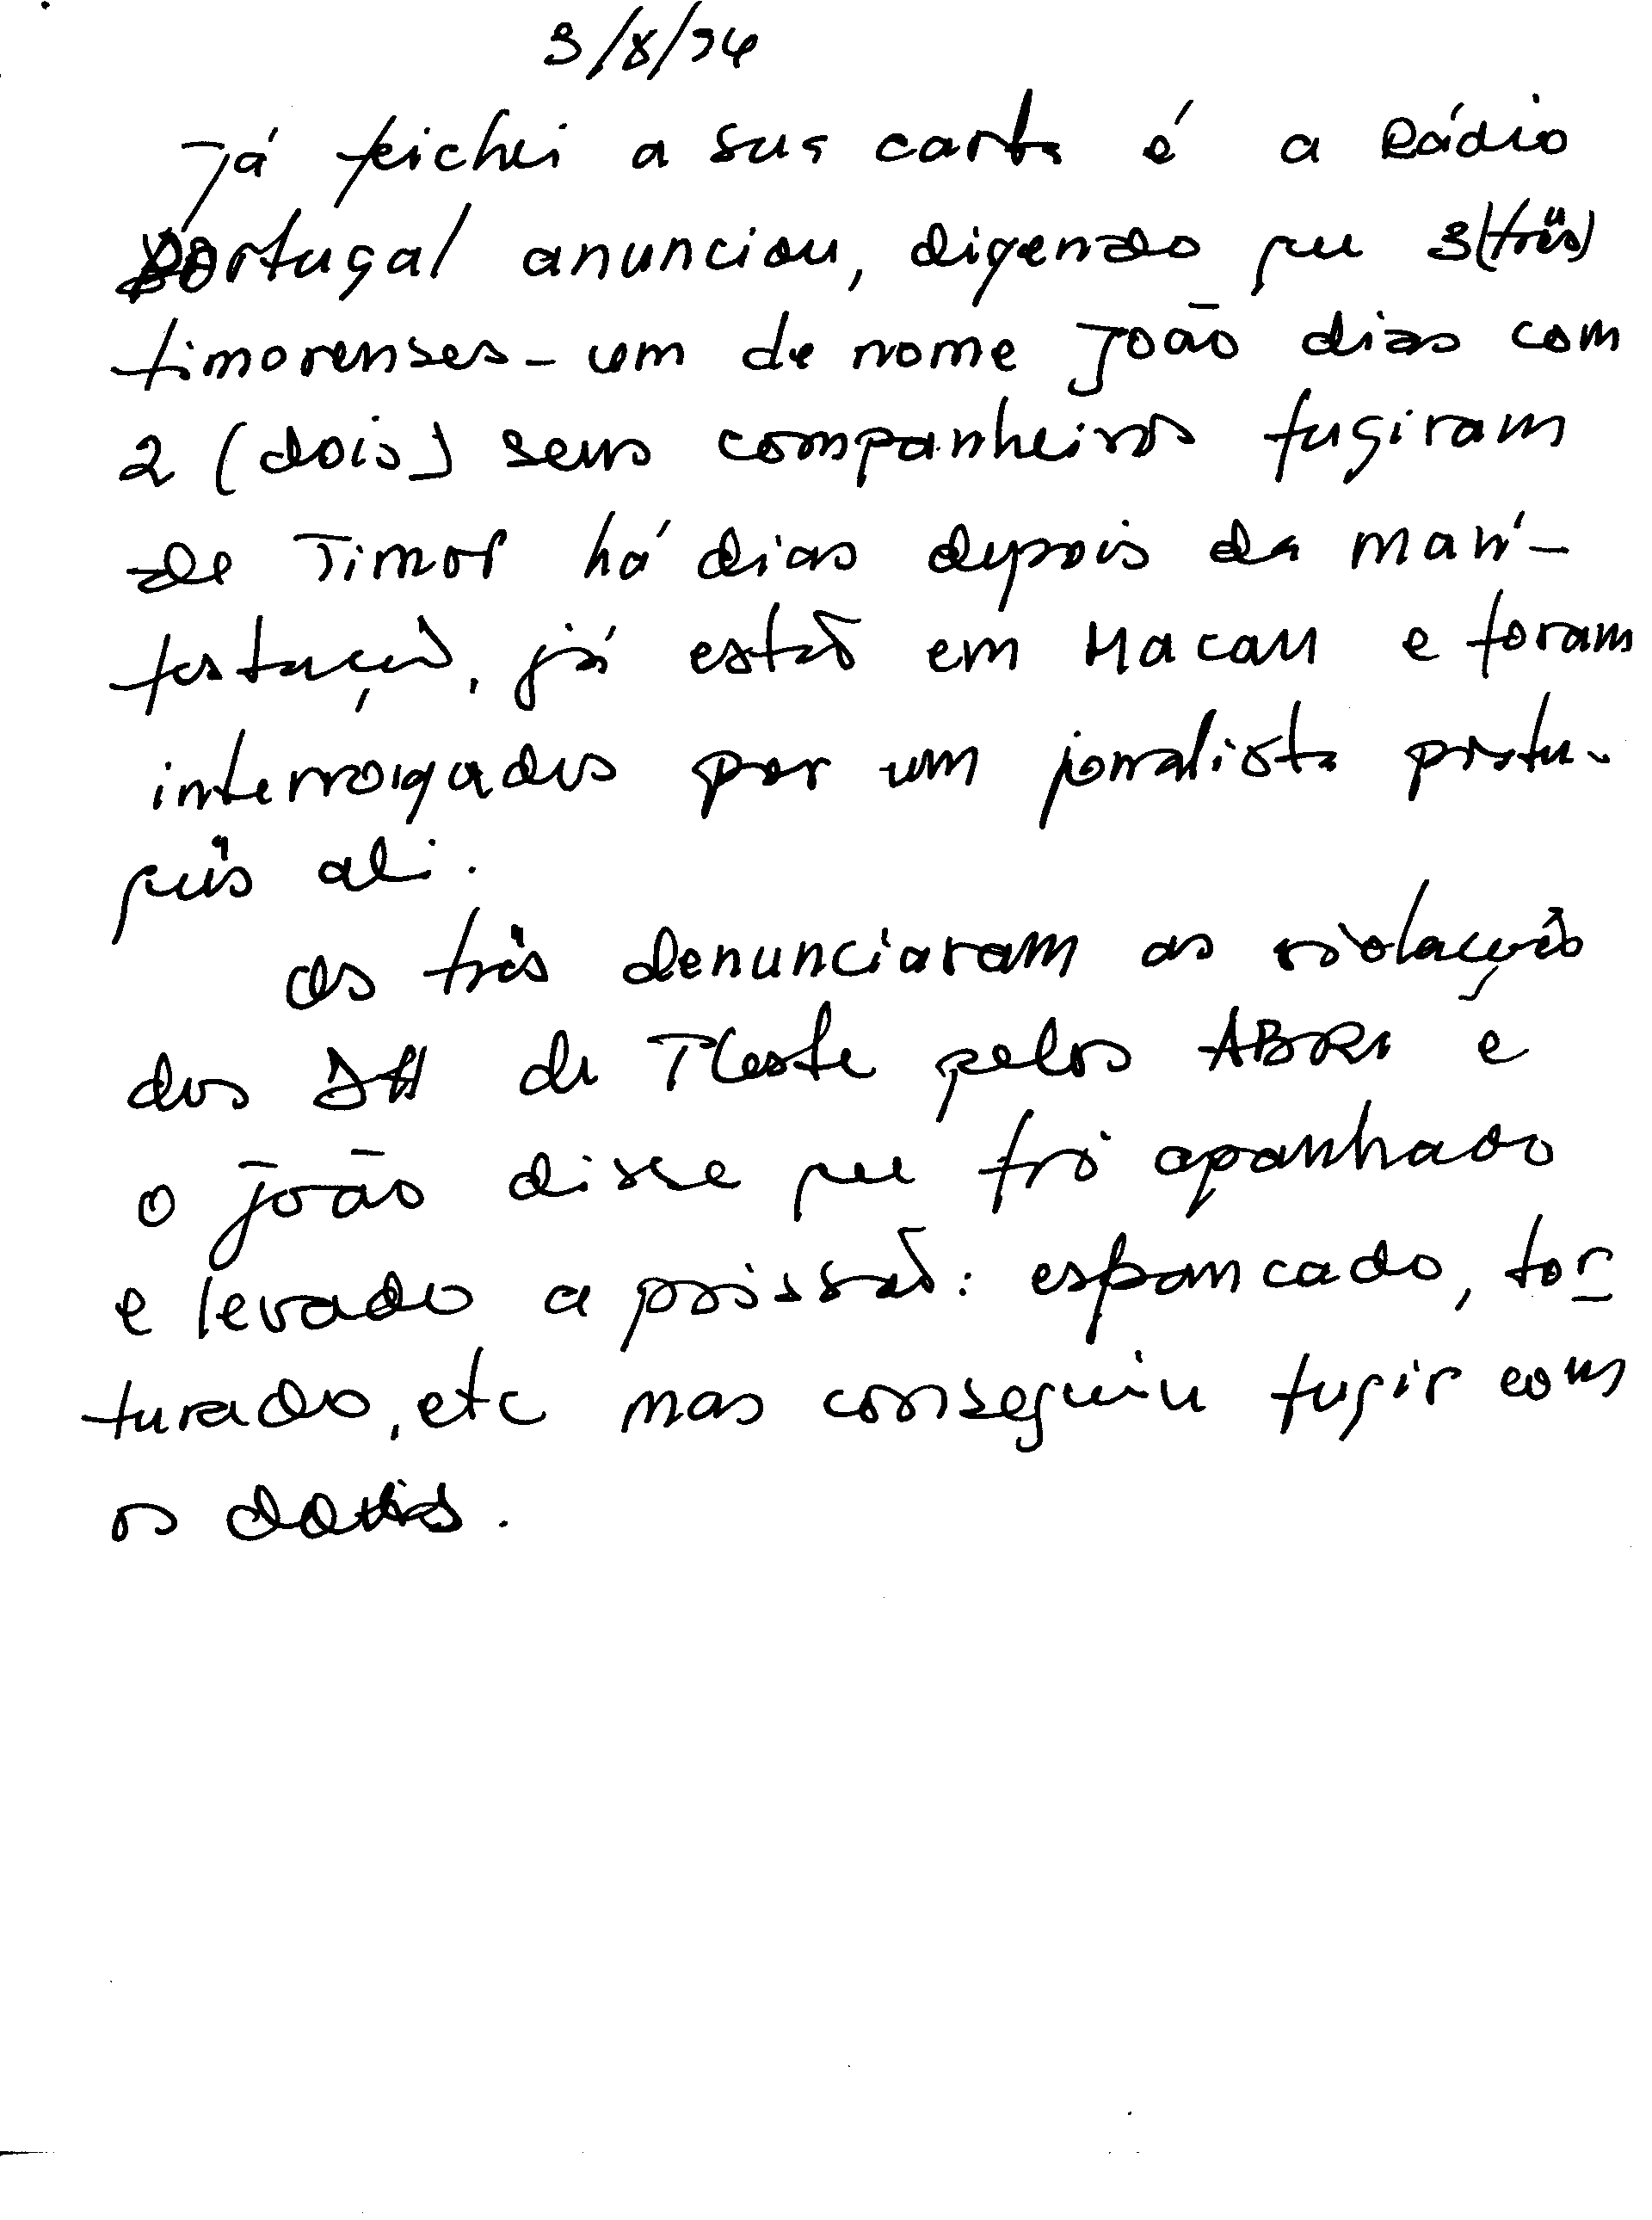 3/8/94
Já feichei a sua carta é a Rádio
Portugal anunciou, dizendo que 3(três)
timorenses - um de nome João dias com
2 (dois) seus companheiros fugiram
de Timor há dias depois da mani-
festação, já estão em Macau e foram
interrogados por um jornalista portu-
guês ali.
Os três denunciaram as violações
dos DH de TLeste pelos ABRI e
o João disse que foi apanhado
e levado a prissão: espancado, tor-
turado, etc mas conseguiu fugir com
os dois.